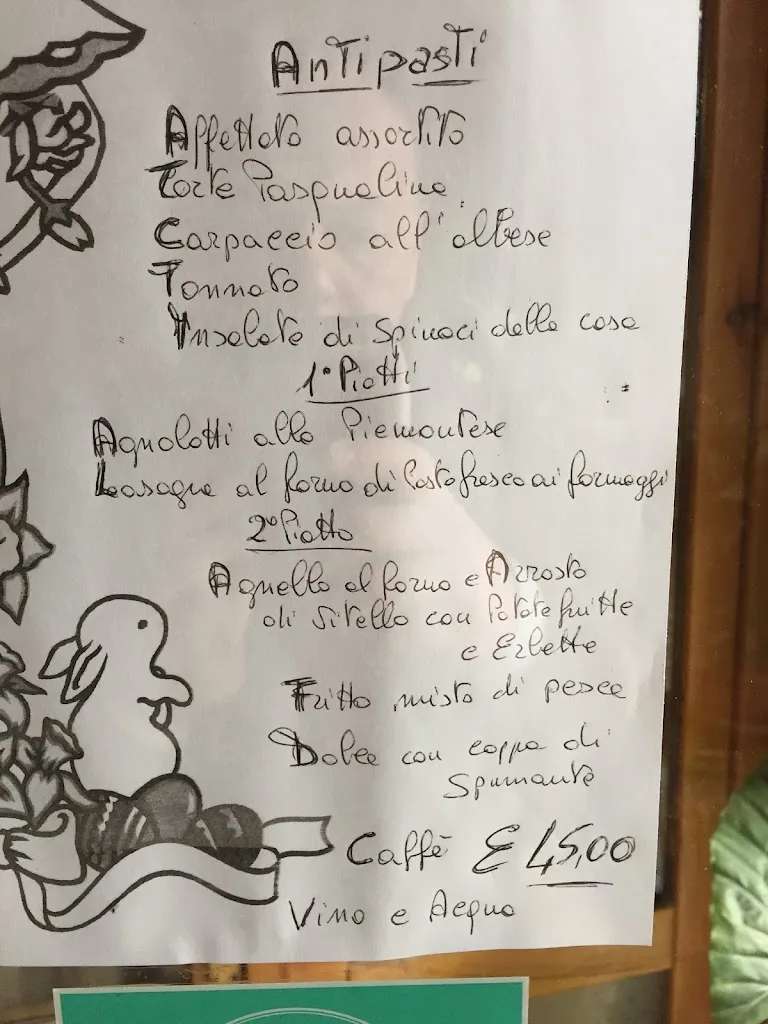 Antipasti
Affettato assortito
Torte Pasqualine
Carpaccio all'albese
Tonnato
Insalata di Spinaci della casa
1° Piatti
Agnolotti alla Piemontese
Lasagne al forno di Pasta fresca ai formaggi
2° Piatto
Agnello al forno e Arrosto
di Vitello con Patate fritte
e Erbette
Fritto misto di pesce
Dolce con coppa di
Spumante
Caffè € 45,00
Vino e Acqua